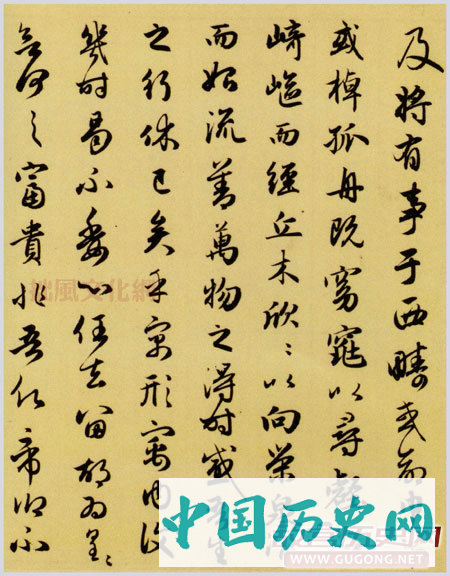 及將有事于西疇或命
或棹孤舟既窈窕以尋壑
崎嶇而經丘木欣〻以向榮泉
而始流善萬物之得时感吾生
之行休已矣乎寓形宇内復
幾时曷不委心任去留胡為皇〻
何之富貴非吾願帝鄉不
拙風文化網
中国历史网
WWW.GUGONG.NET